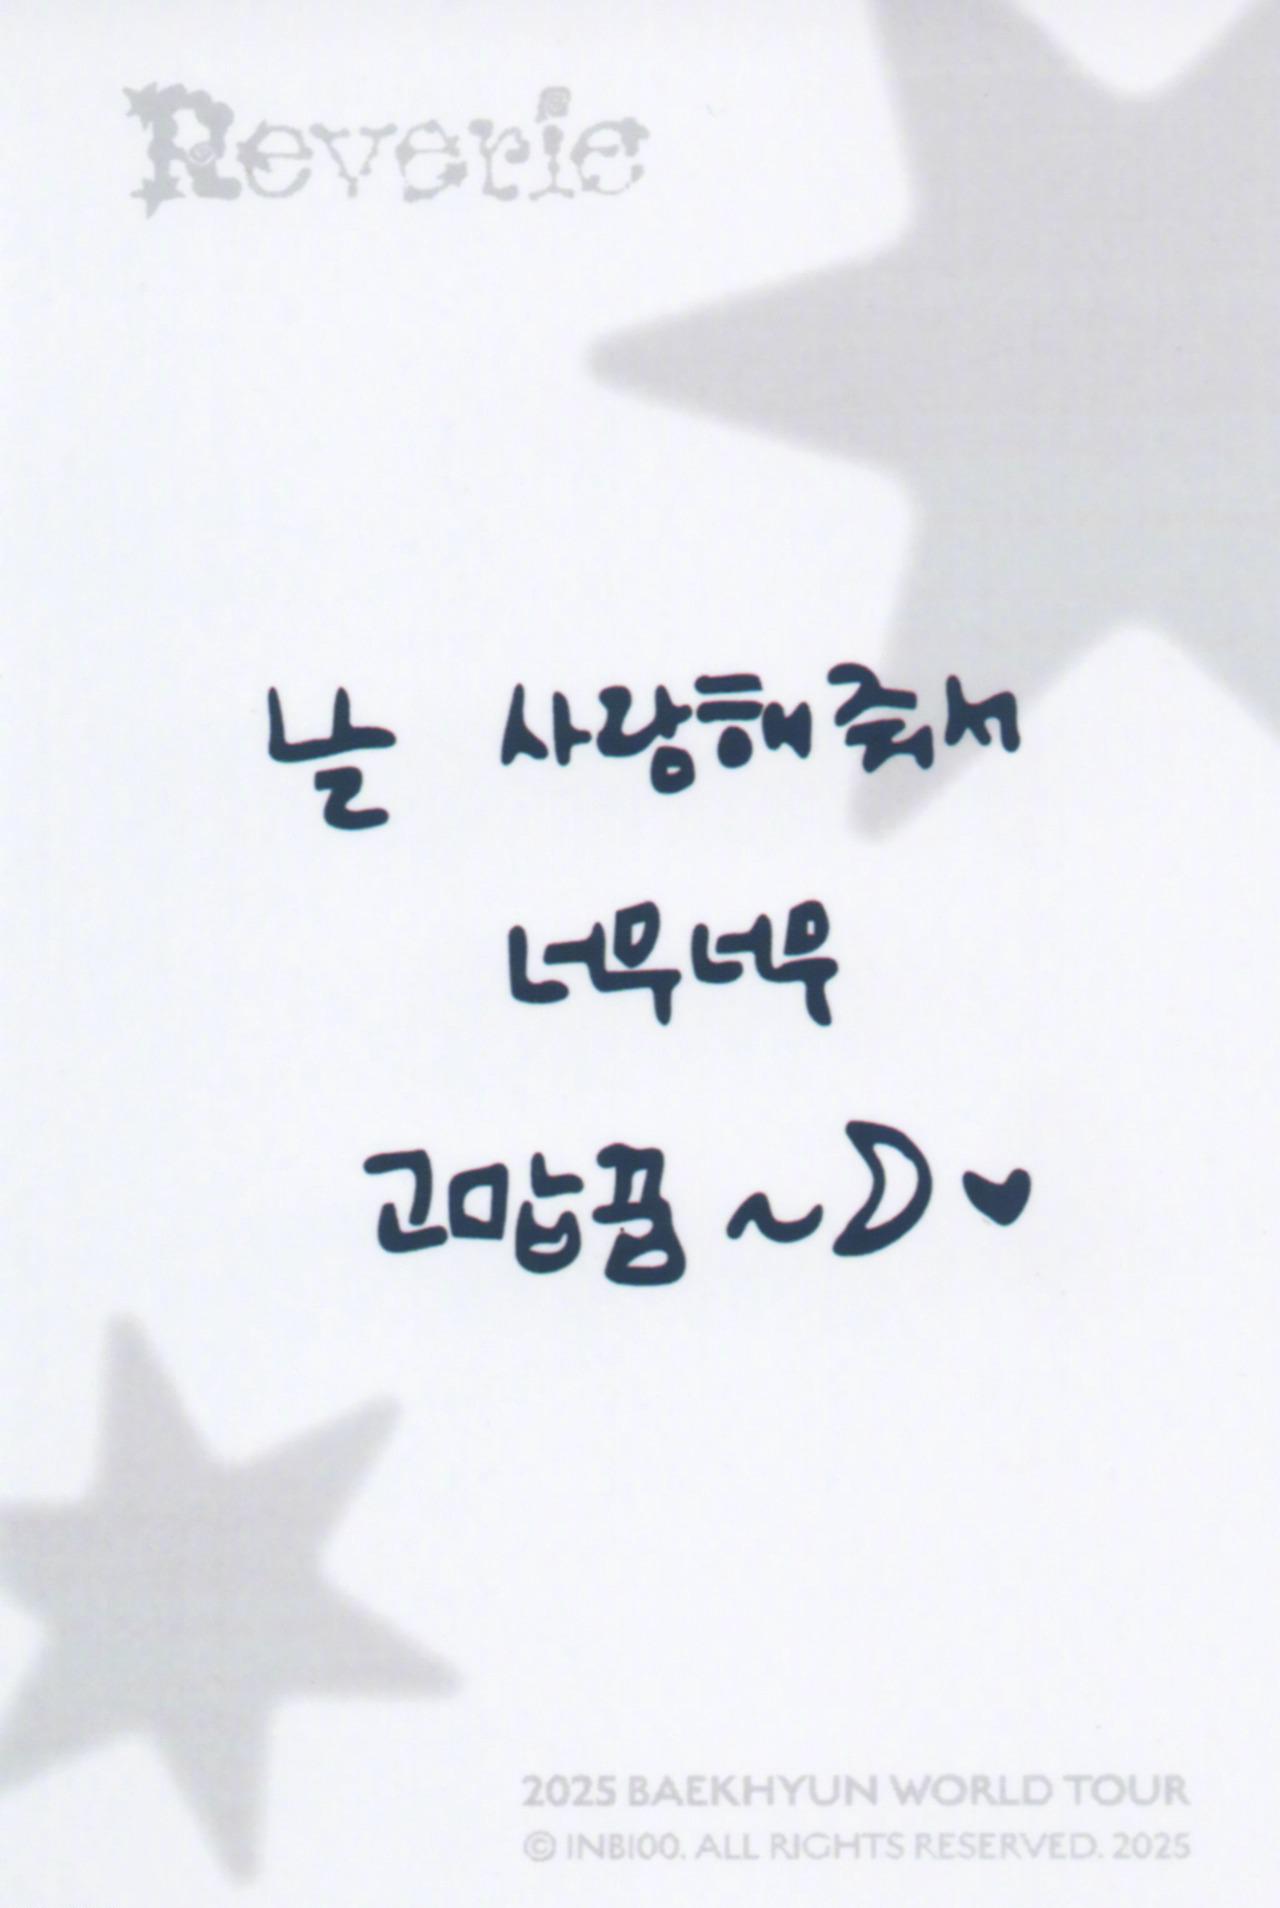 Reverie
날 사랑해줘서
너무너무
고맙꿍 ~☽♥
2025 BAEKHYUN WORLD TOUR
© INB100. ALL RIGHTS RESERVED. 2025